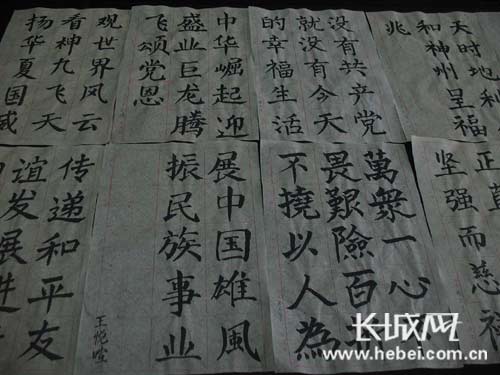 天时地利
和神州呈福
兆
没有共产党
就没有今天
的幸福生活
中华崛起迎
盛业巨龙腾
飞颂党恩
观世界风云
看神九飞天
扬华夏国威
正直
坚强而慈祥
萬衆一心不
畏艱險百折
不撓以人為
展中国雄風
振民族事业
传递和平友
谊发展进
长城网
www.hebei.com.cn